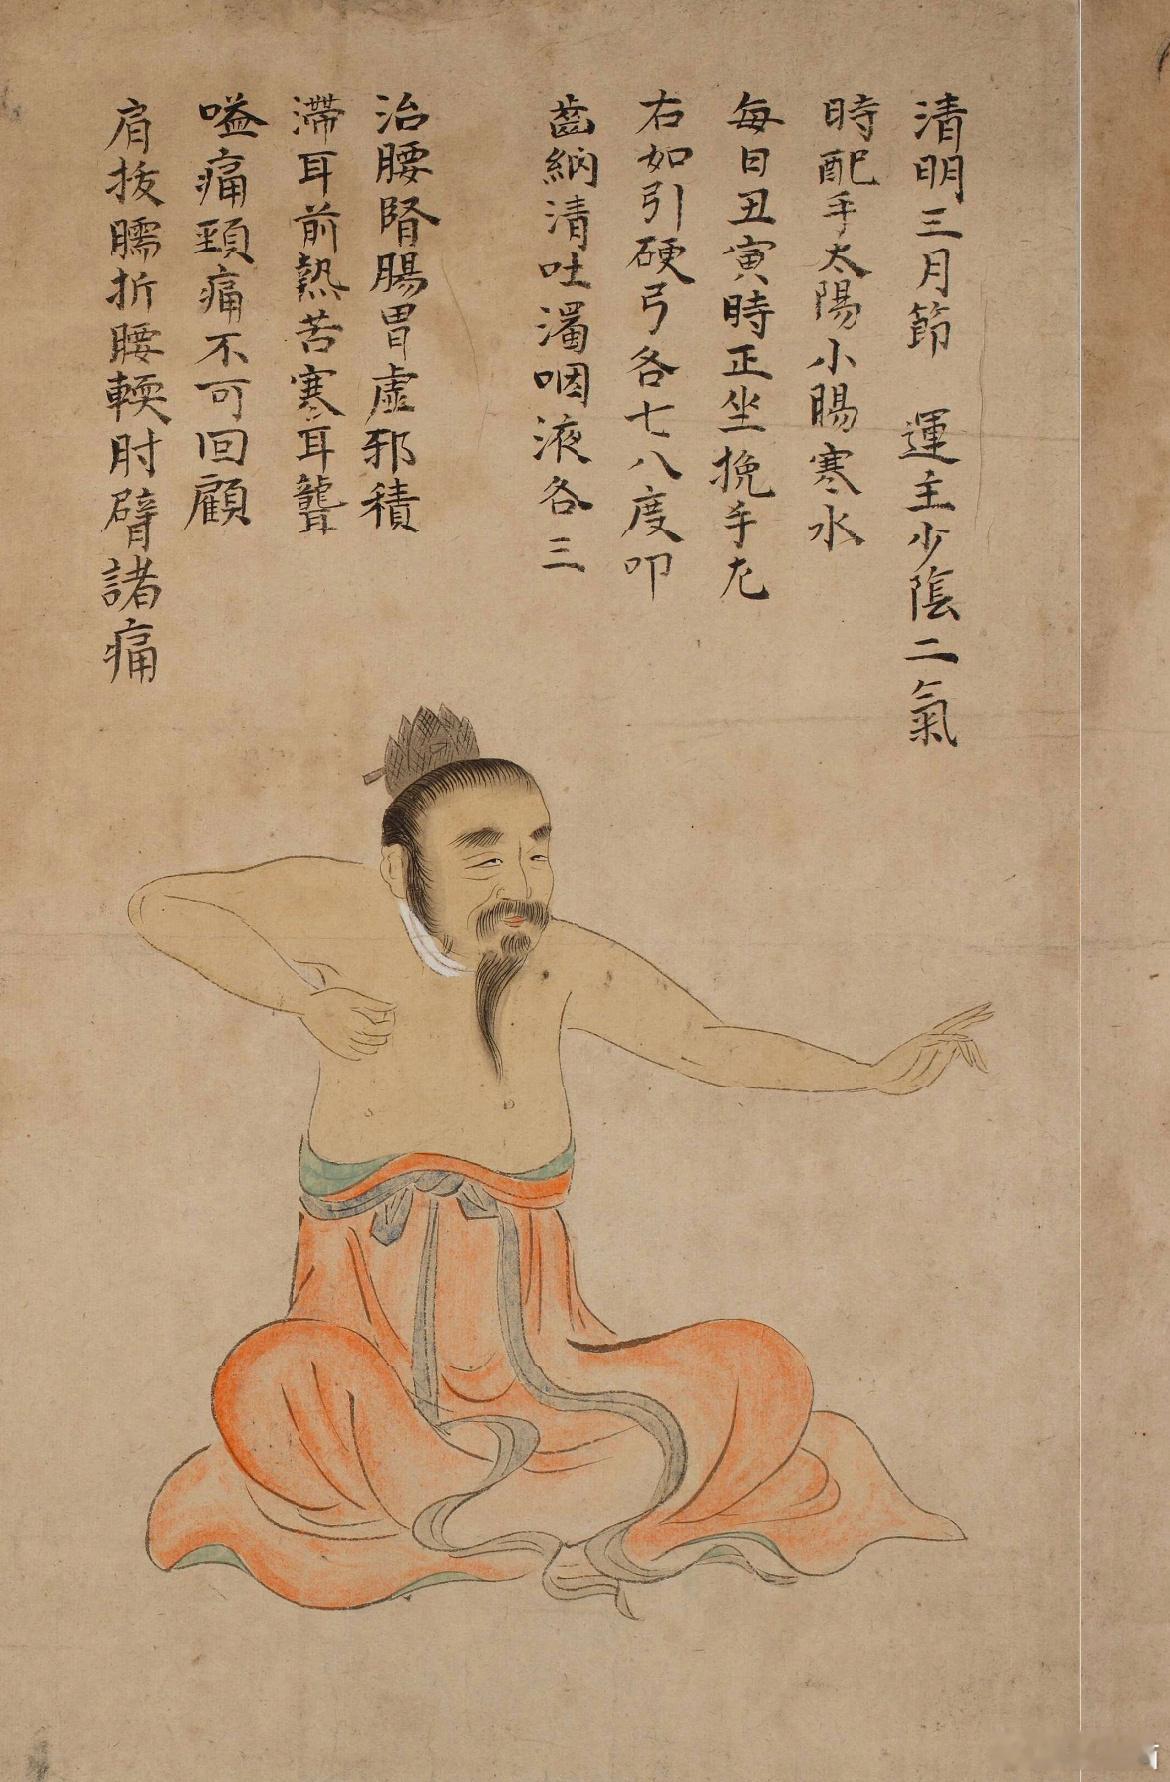 清明三月節　運主少陰二氣
時配手太陽小腸寒水
每日丑寅時正坐挽手左
右如引硬弓各七八度叩
齒納清吐濁咽液各三
治腰腎腸胃虛邪積
滯耳前熱苦寒耳聾
嗌痛頸痛不可回顧
肩拔臑折腰軟肘臂諸痛